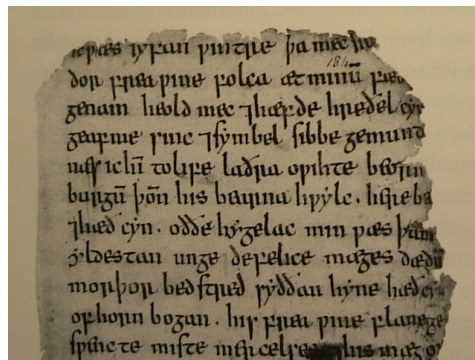 ic wæs syfan wintre þa mec sin
184
dor frea wine folca æt minū fæd
genam heold mec ⁊hæfde hreðel cyn
geaf me sinc ⁊symbel sibbe gemund
næs ic hī to life laðra owihte beorn in
burgū þōn his bearna hwylc · here ba
⁊hæð cyn · oððe hygelac min wæs þam
yldestan unge defelice mæges dædū
morþor bed stred syððan hyne hæð cy
of horn bogan · his frea wine flane ge
swencte miste mercelses his mæg of